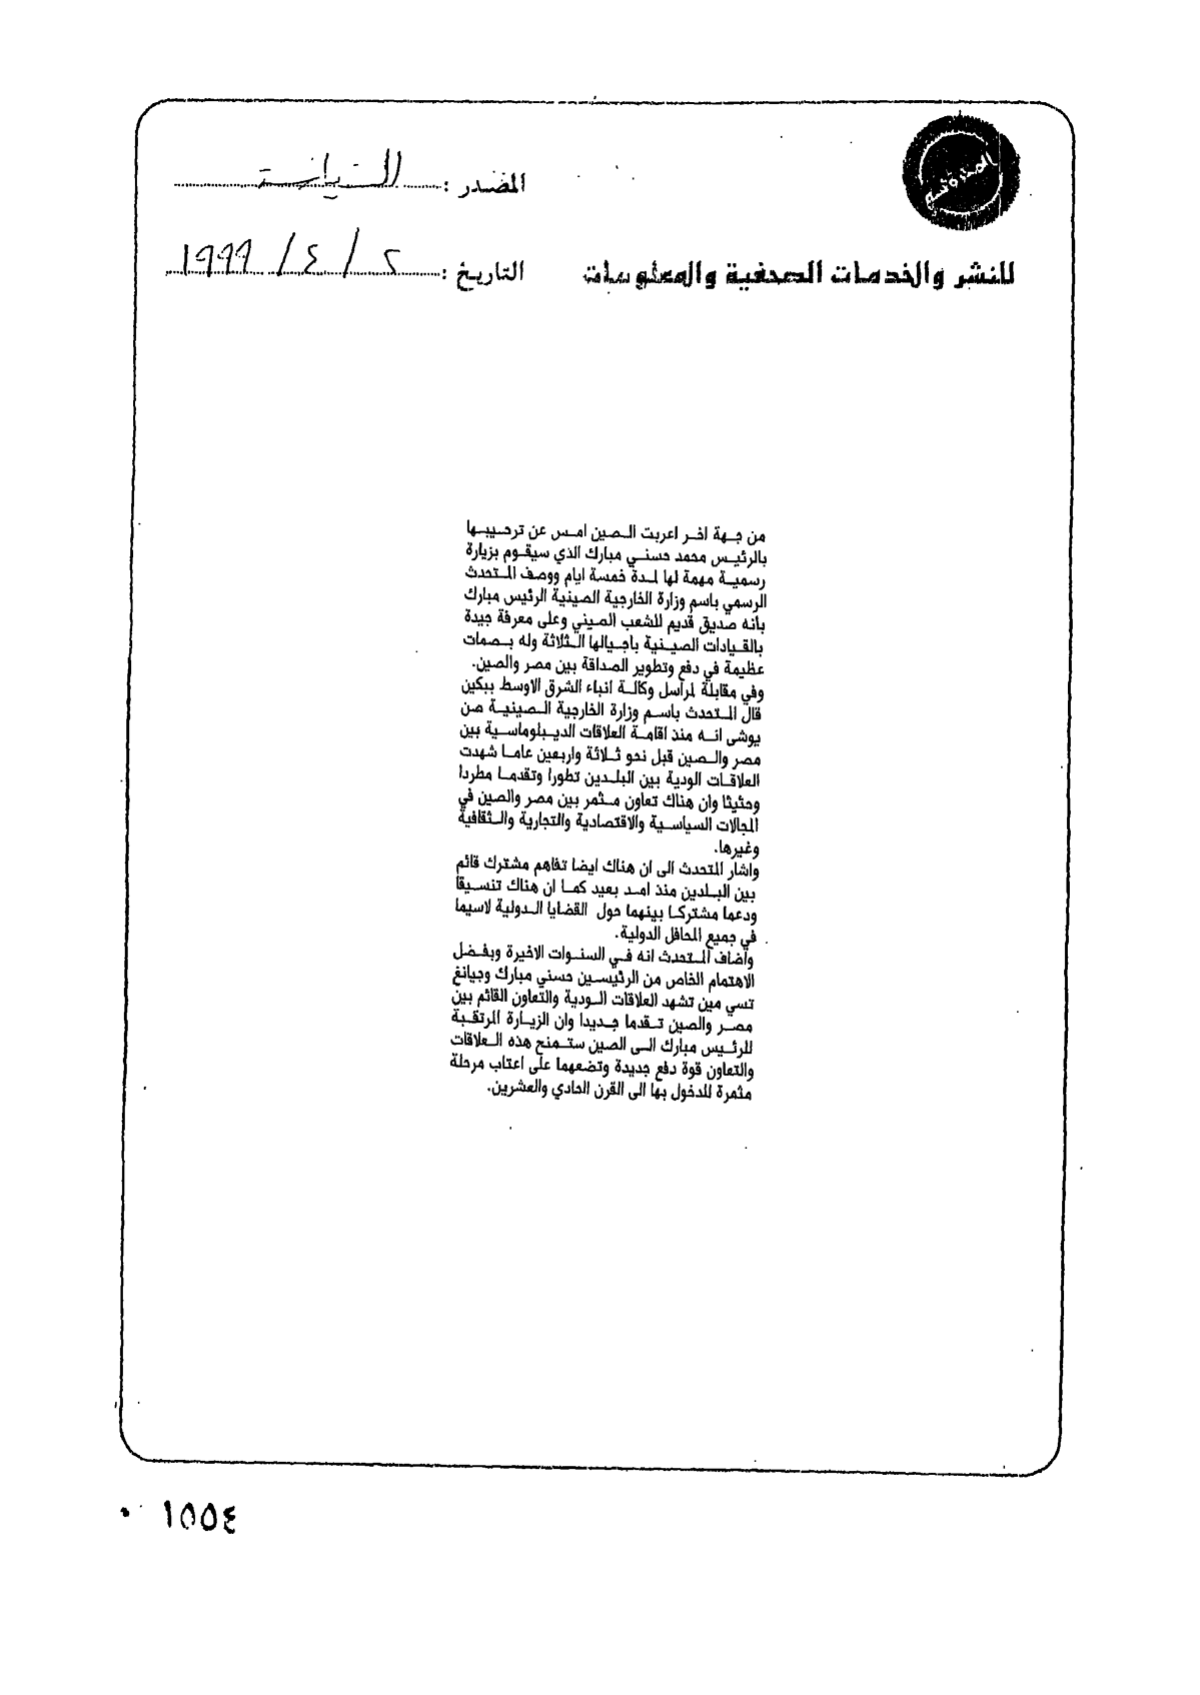 المصدر : السياسة
للنشر والخدمات الصحفية والمعلومات
التاريخ : ٢ / ٤ / ١٩٩٩
من جهة اخر اعربت الصين امس عن ترحيبها
بالرئيس محمد حسني مبارك الذي سيقوم بزيارة
رسمية مهمة لها لمدة خمسة ايام ووصف المتحدث
الرسمي باسم وزارة الخارجية الصينية الرئيس مبارك
بأنه صديق قديم للشعب الصيني وعلى معرفة جيدة
بالقيادات الصينية باجيالها الثلاثة وله بصمات
عظيمة في دفع وتطوير الصداقة بين مصر والصين.
وفي مقابلة لمراسل وكالة انباء الشرق الاوسط ببكين
قال المتحدث باسم وزارة الخارجية الصينية صن
يوشى انه منذ اقامة العلاقات الديبلوماسية بين
مصر والصين قبل نحو ثلاثة واربعين عاما شهدت
العلاقات الودية بين البلدين تطورا وتقدما مطردا
وحثيثا وان هناك تعاون مثمر بين مصر والصين في
المجالات السياسية والاقتصادية والتجارية والثقافية
وغيرها.
واشار المتحدث الى ان هناك ايضا تفاهم مشترك قائم
بين البلدين منذ امد بعيد كما ان هناك تنسيقا
ودعما مشتركا بينهما حول القضايا الدولية لاسيما
في جميع المحافل الدولية.
وأضاف المتحدث انه في السنوات الاخيرة وبفضل
الاهتمام الخاص من الرئيسين حسني مبارك وجيانغ
تسي مين تشهد العلاقات الودية والتعاون القائم بين
مصر والصين تقدما جديدا وان الزيارة المرتقبة
للرئيس مبارك الى الصين ستمنح هذه العلاقات
والتعاون قوة دفع جديدة وتضعهما على اعتاب مرحلة
مثمرة للدخول بها الى القرن الحادي والعشرين.
١٥٥٤